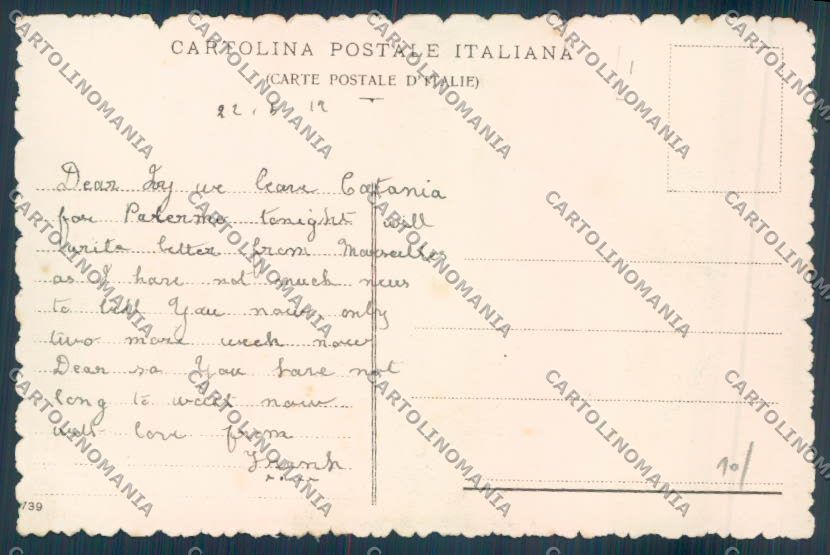 CARTOLINA POSTALE ITALIANA
(CARTE POSTALE D'ITALIE)
22. 5 12
Dear Joy we leave Catania
for Palermo tonight will
write letter from Marseilles
as I have not much news
to tell You now only
two more week now
Dear so You have not
long to wait now
with love from
Frank
x x x x
10/
739
CARTOLINOMANIA